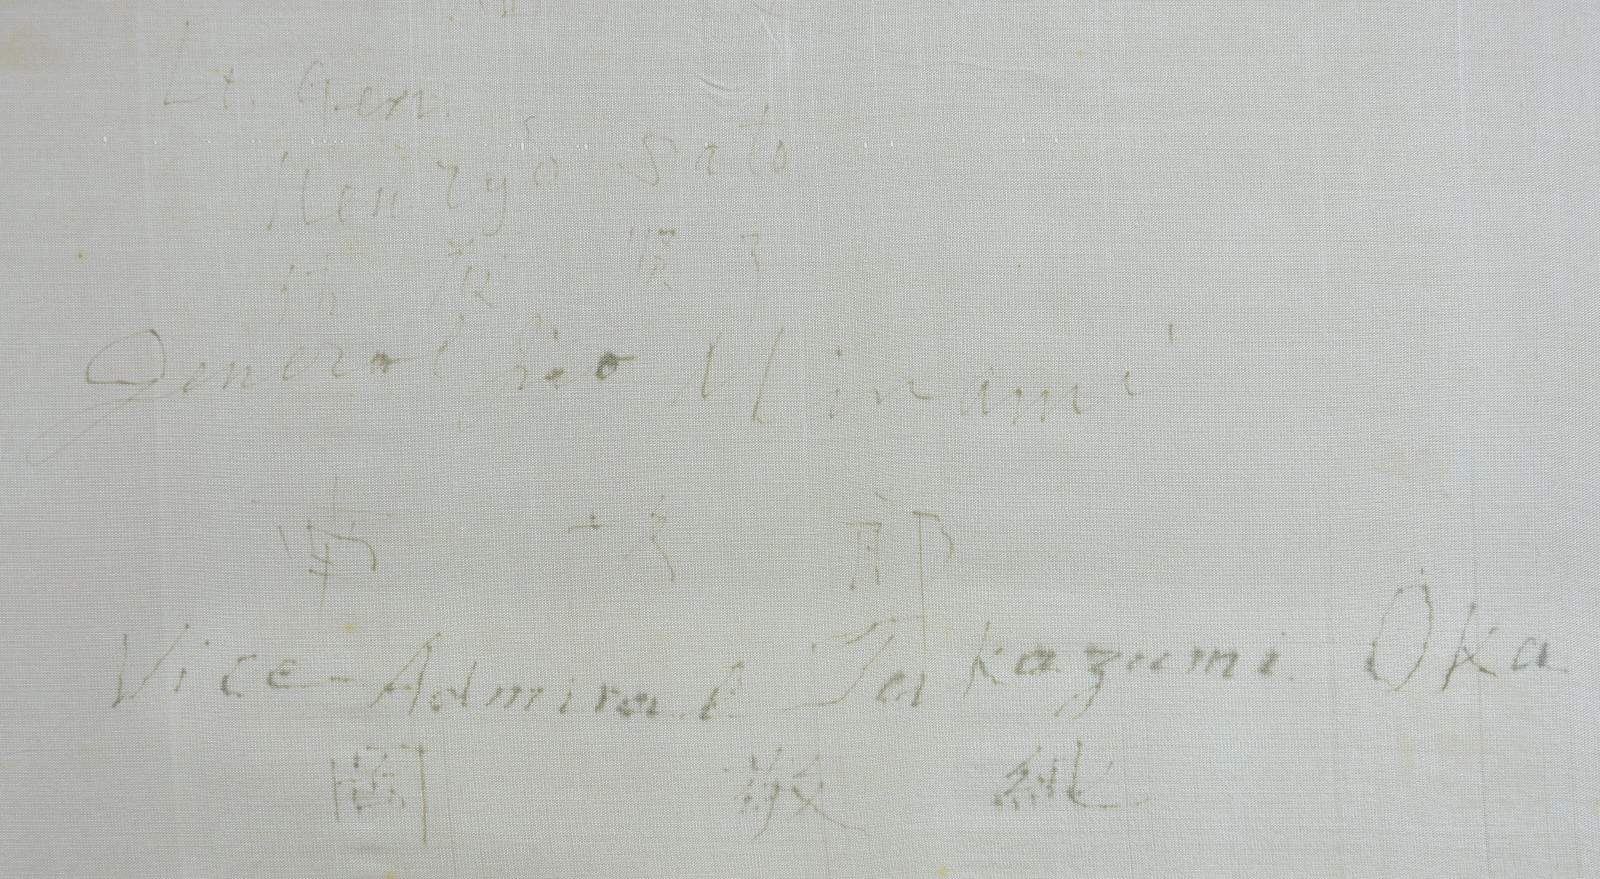 Lt. Gen.
Kenryo Sato
佐藤 賢了
General Jiro Minami
南 次郎
Vice-Admiral Takazumi Oka
岡 敬純